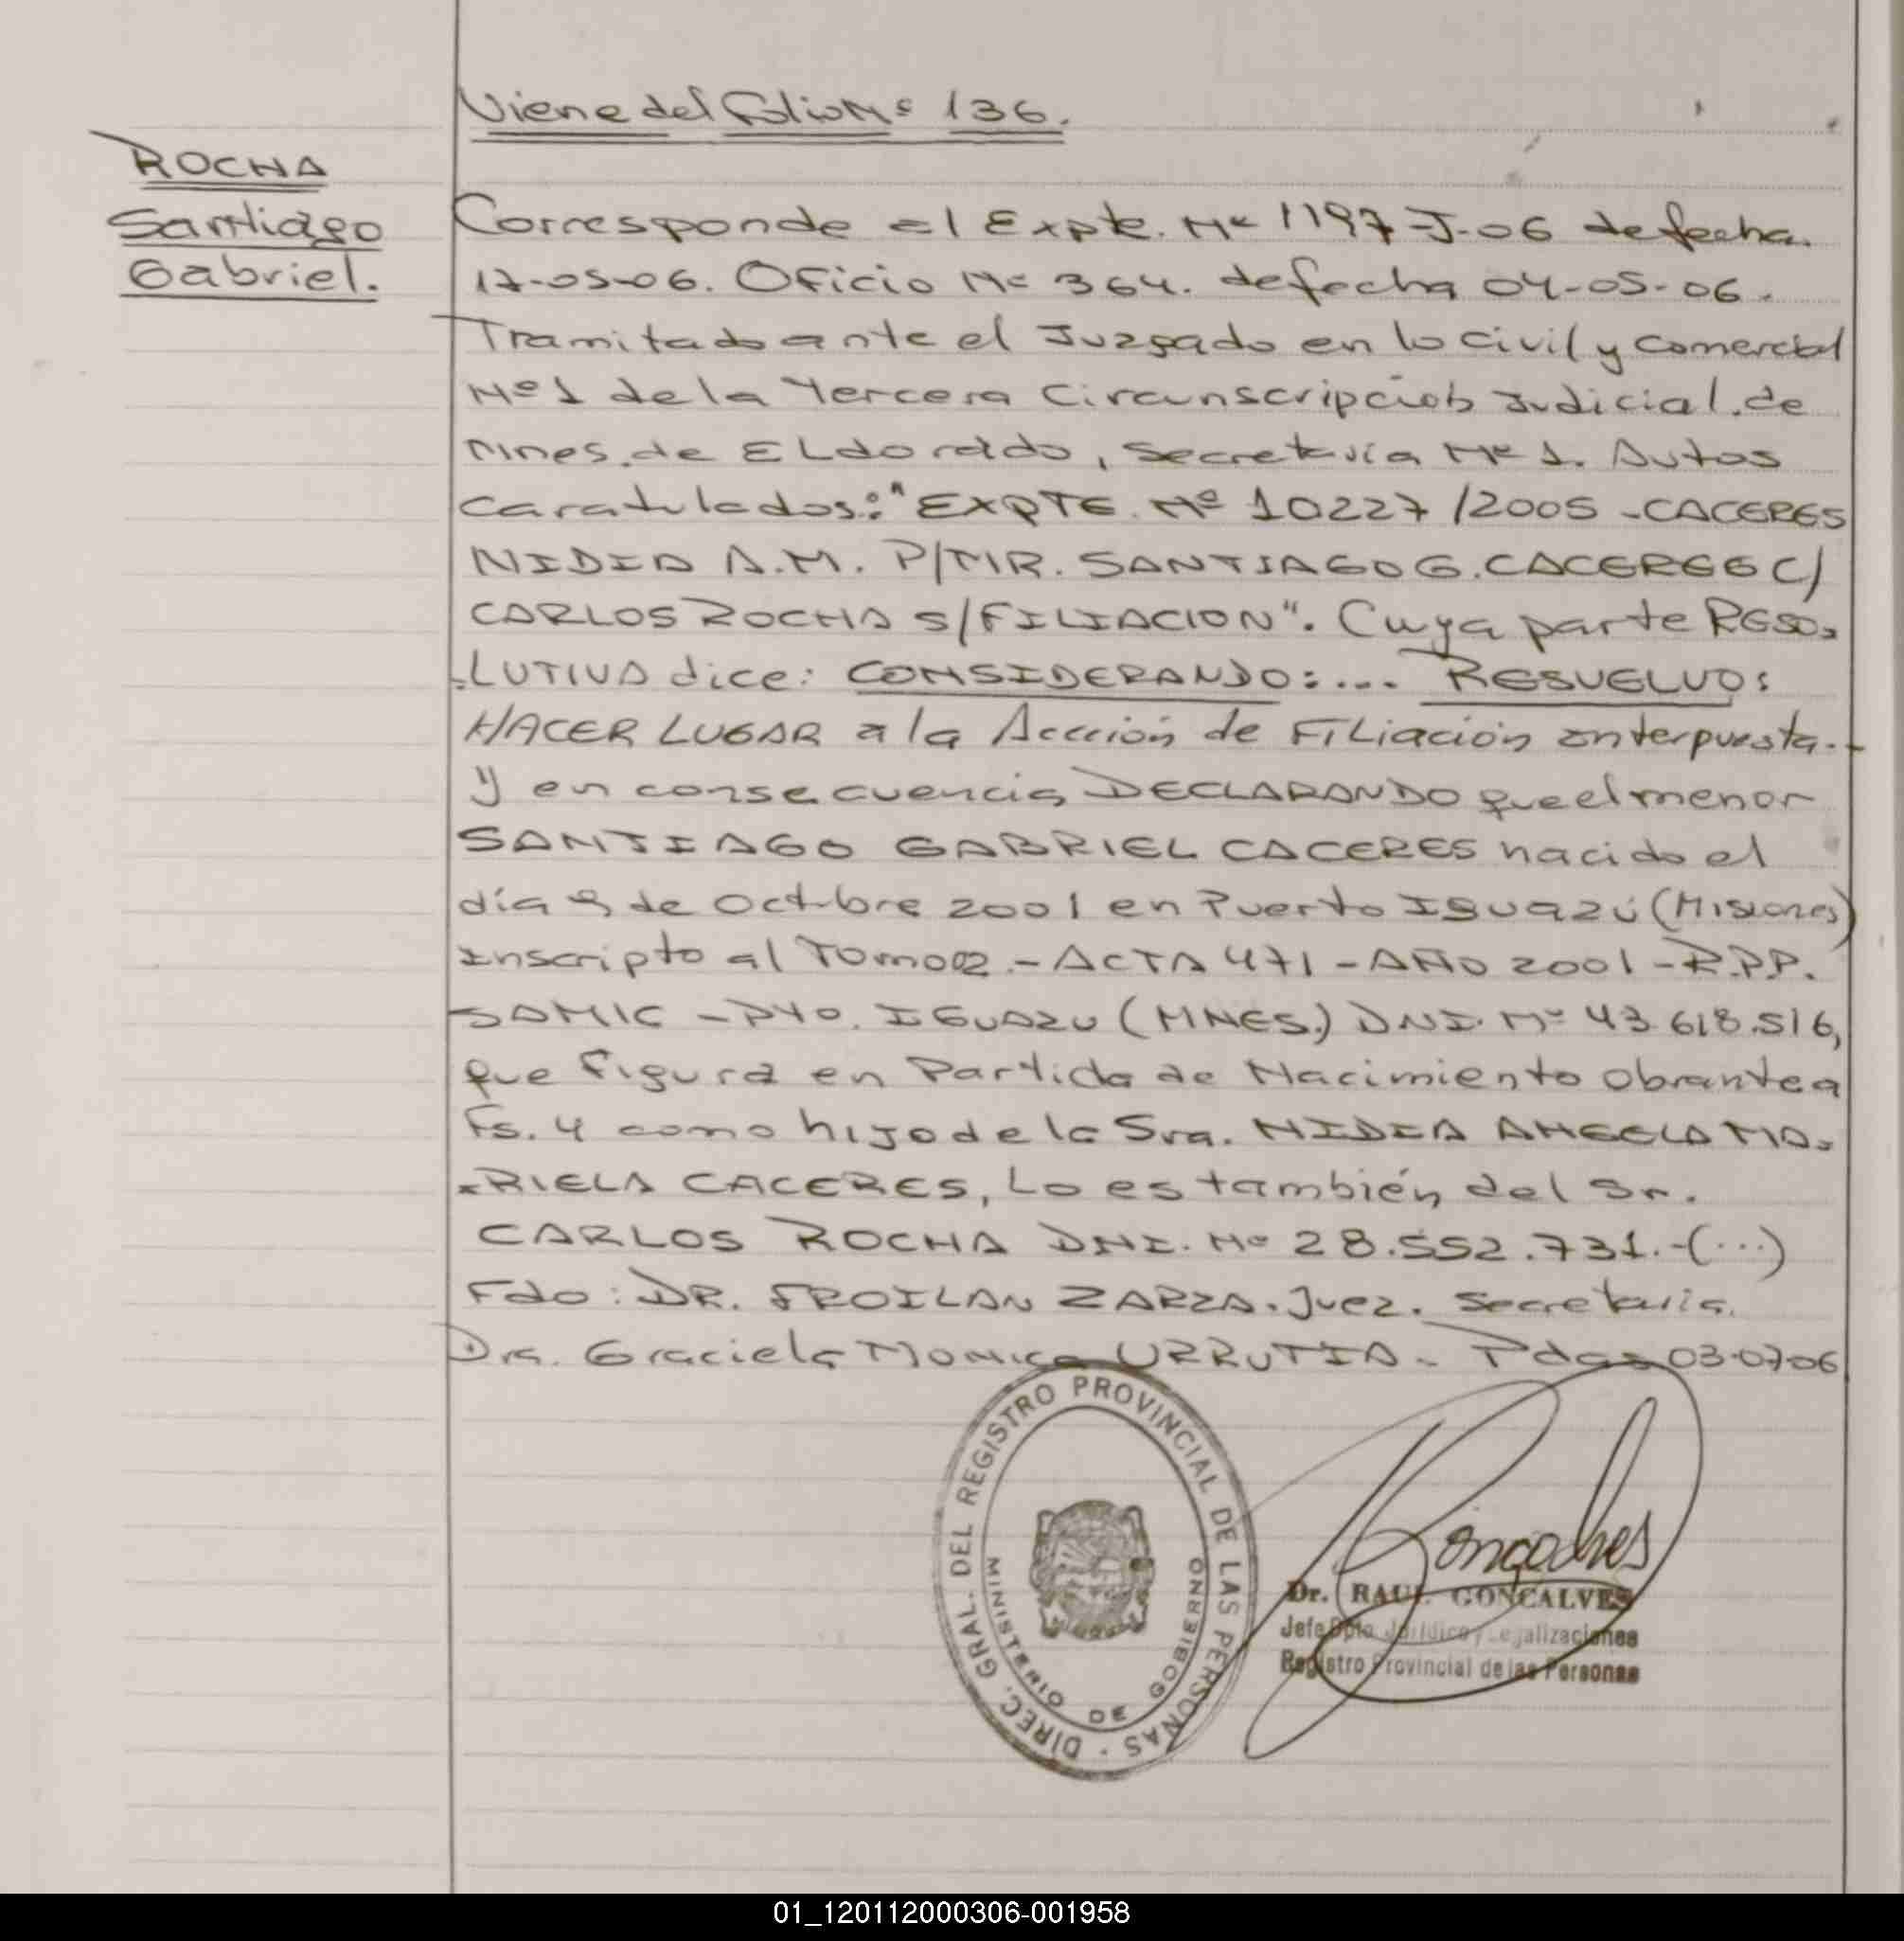 Viene del Folio Nº 136.
ROCHA
Santiago
Gabriel.
Corresponde al Expte. Nº 1197-J-06 de fecha.
17-05-06. Oficio Nº 364. de fecha 04-05-06.
Tramitado ante el Juzgado en lo Civil y Comercial
Nº 1 de la Tercera Circunscripción Judicial. de
Mnes. de ELdorado, Secretaría Nº 1. Autos
Caratulados: "EXPTE. Nº 10227/2005 - CACERES
NIDIA A.M. P/MR. SANTIAGO G. CACERES C/
CARLOS ROCHA S/FILIACION". Cuya parte RESO=
=LUTIVA dice: CONSIDERANDO:... RESUELVO:
HACER LUGAR a la Acción de FiLiación interpuesta.-
Y en consecuencia DECLARANDO que el menor
SANTIAGO GABRIEL CACERES nacido el
día de Octubre 2001 en Puerto Iguazú (Misiones)
inscripto al Tomo 02 - ACTA 471 - AÑO 2001 - R.P.P.
SAMIC - Pto. IGUAZU (MNES.) DNI. Nº 43.618.516,
que figura en Partida de Nacimiento obrante a
Fs. 4 como hijo de la Sra. NIDIA ANGELA MA=
=RIELA CACERES, Lo es también del Sr.
CARLOS ROCHA DNI. Nº 28.552.731.-(...)
Fdo: DR. FROILAN ZARZA. Juez. Secretaria.
Dra. Graciela Monica URRUTIA. Pdas 03-07-06
DIREC. GRAL. DEL REGISTRO PROVINCIAL DE LAS PERSONAS
MINISTERIO DE GOBIERNO
Gonçalves
Dr. RAUL GONCALVES
Jefe Dpto Jurídico y Legalizaciones
Registro Provincial de las Personas
01_120112000306-001958